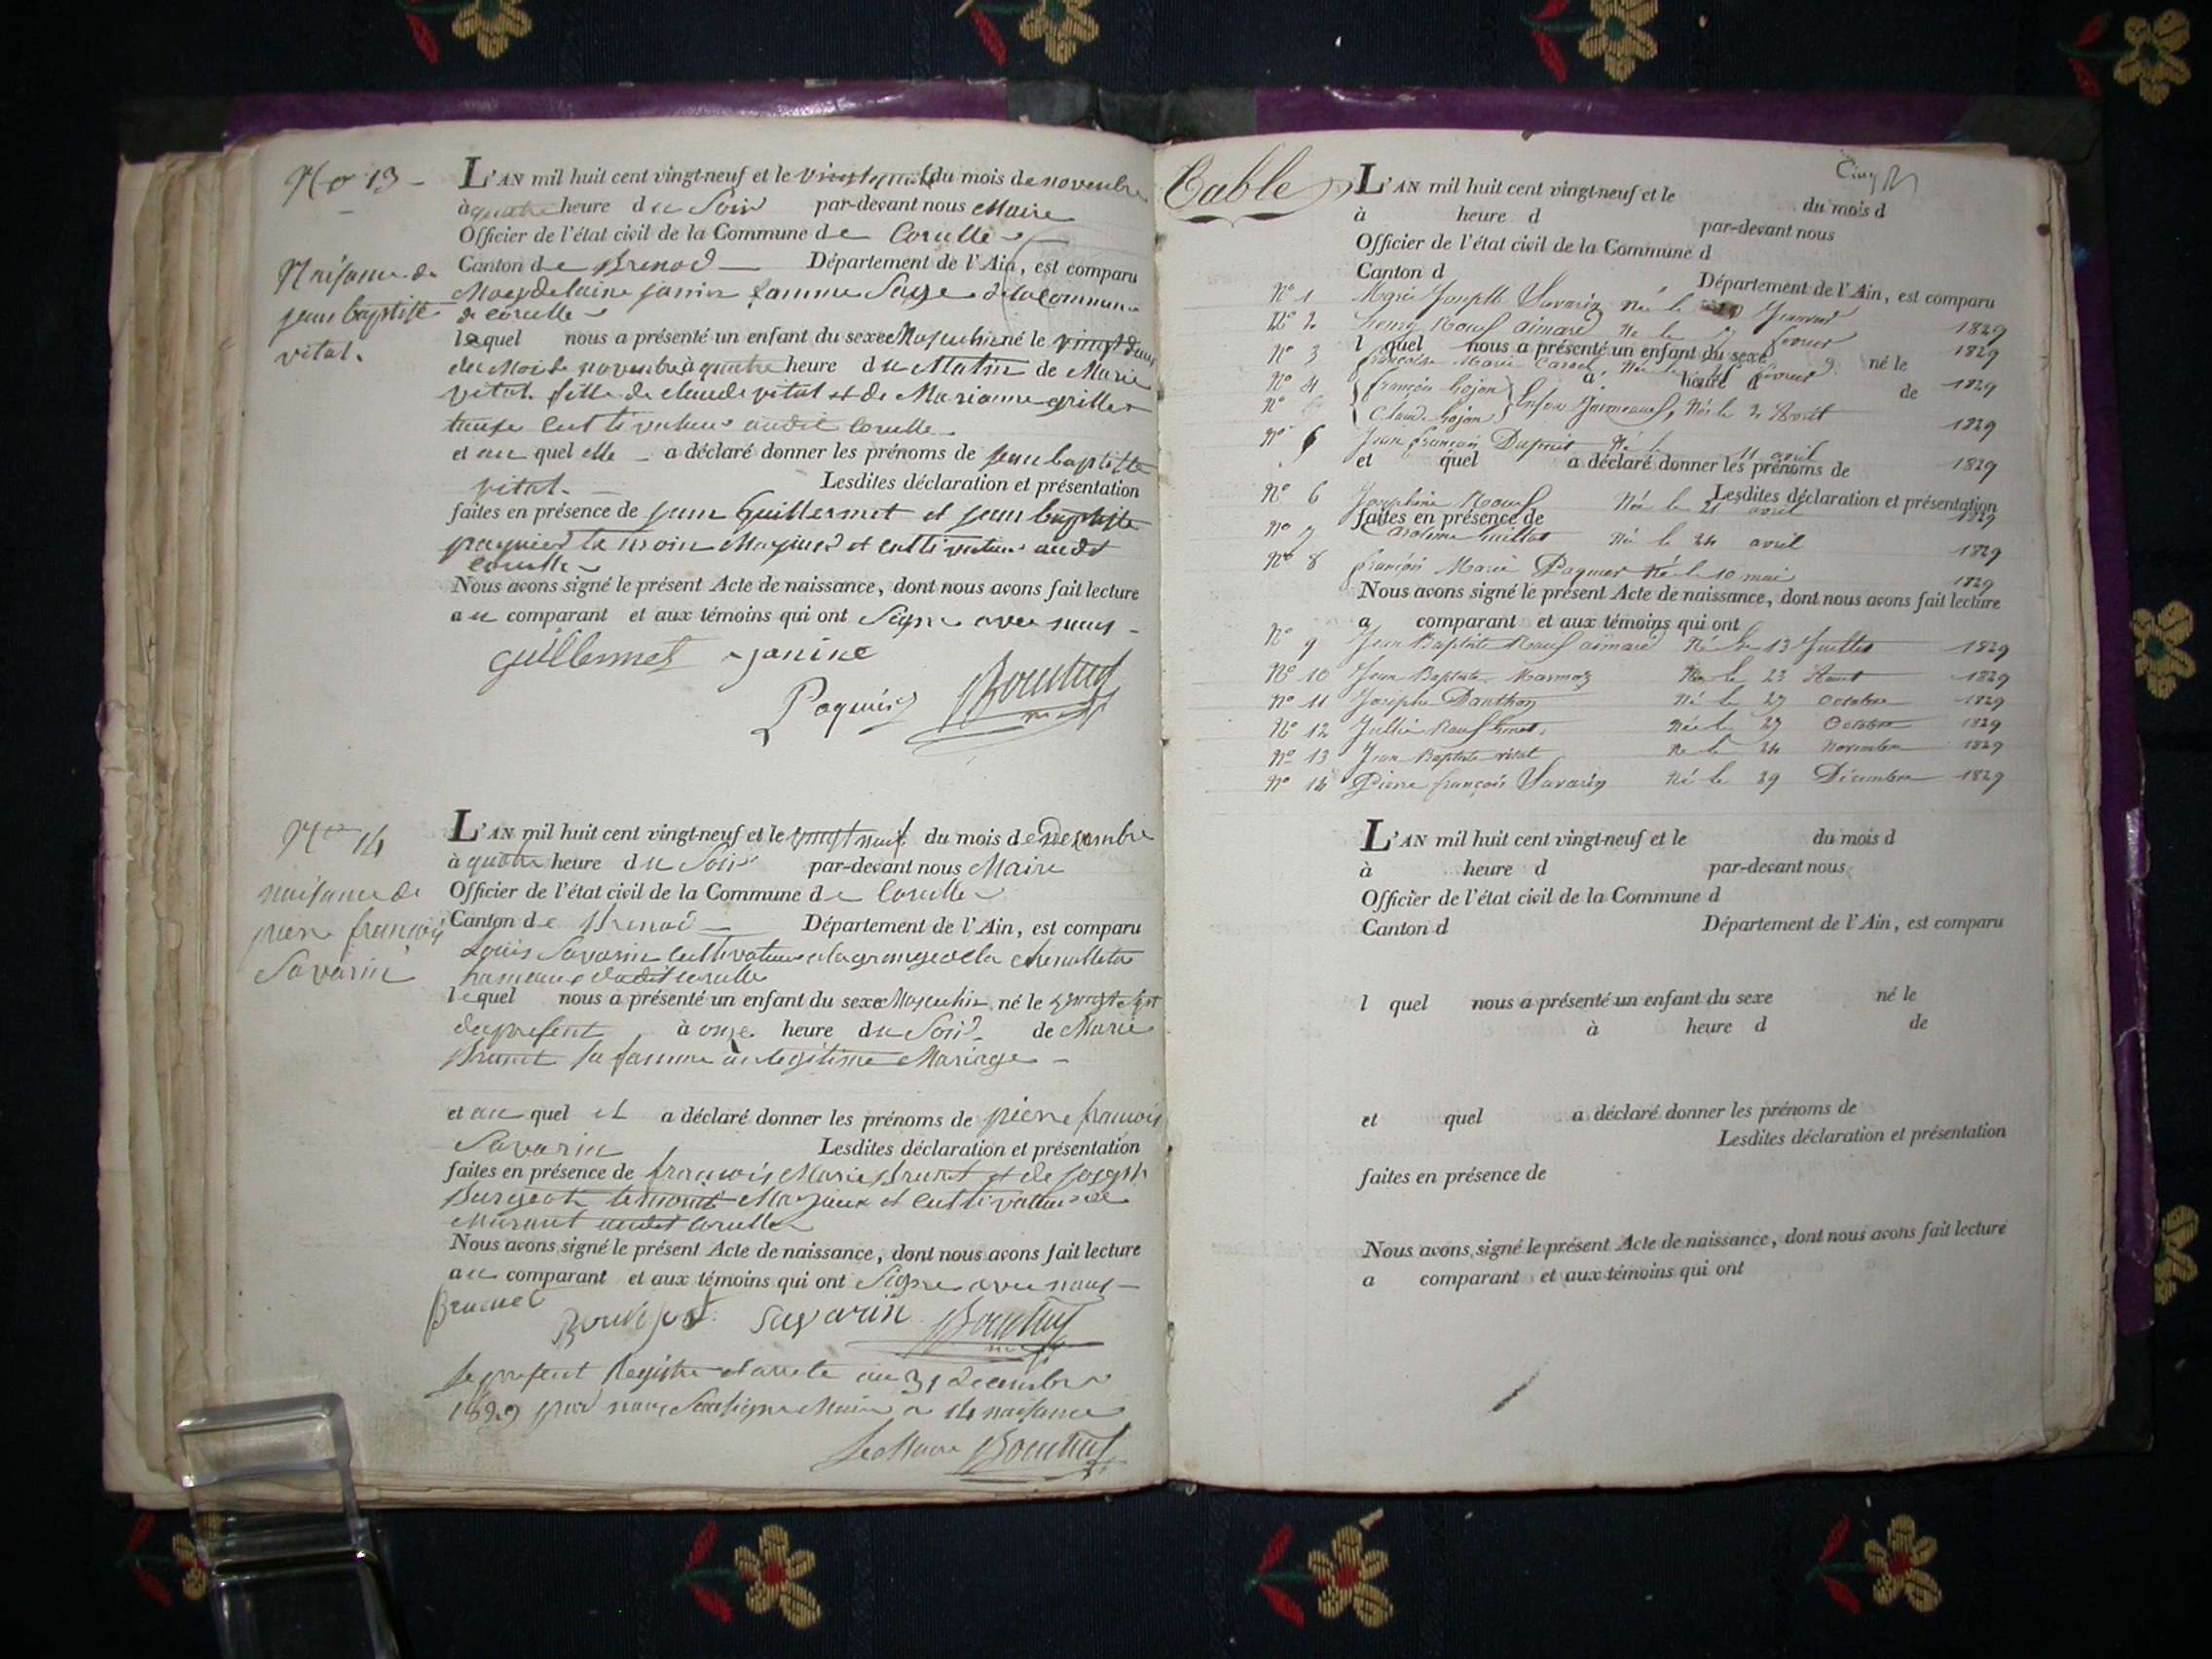 No 13
Naisance de
jean baptiste
vital.
L'AN mil huit cent vingt-neuf et le du mois de novembre
à quatre heure du Soir par-devant nous Maire
Officier de l'état civil de la Commune de Corcelle
Canton de Brenod Département de l'Ain, est comparu
Magdelaine janin famme Sage de la Commune
de corcelle
laquel nous a présenté un enfant du sexe Masculin né le vingt deux
du Mois de novembre à quatre heure du Matin de Marie
vital. fille de claude vital et de Marianne grillet
cultivateur audit Corcelle.
et au quel elle a déclaré donner les prénoms de jean baptiste
vital. Lesdites déclaration et présentation
faites en présence de jean Guillermet et jean baptiste
paquier temoin Majeurs et cultivateur audit
Corcelle
Nous avons signé le présent Acte de naissance, dont nous avons fait lecture
au comparant et aux témoins qui ont Signe avec nous
guillermet janine
Paquier
No 14
naisance de
piere francois
Savarin
L'AN mil huit cent vingt-neuf et le vingt neuf du mois de Decembre
à quatre heure du Soir par-devant nous Maire
Officier de l'état civil de la Commune de Corcelle
Canton de Brenod Département de l'Ain, est comparu
Louis Savarin Cultivateur a la grange de la
hameau dudit corcelle
lequel nous a présenté un enfant du sexe Masculin né le vingt sept
du present à onze heure du Soir de Marie
Brunet sa famme en legitime Mariage
et au quel il a déclaré donner les prénoms de pierre francois
Savarin Lesdites déclaration et présentation
faites en présence de francois Marie Brunet et de joseph
temoins Majeurs et Cultivateur de
audit Corcelle
Nous avons signé le présent Acte de naissance, dont nous avons fait lecture
au comparant et aux témoins qui ont Signe avec nous
Brunet Savarin
Le present Registre et arrete au 31 decembre
1829 par nous Sousigne Maire a 14 naisance
Le Maire
Table
L'AN mil huit cent vingt-neuf et le du mois d
à heure d par-devant nous
Officier de l'état civil de la Commune d
Canton d Département de l'Ain, est comparu
No 1 Marie Joseph Savarin né le Janvier 1829
No 2 aimard né le fevrier 1829
l quel nous a présenté un enfant du sexe né le
No 3 françoise Marie née le fevrier 1829
à heure d de
No 4 françois Cojon
No Claude Cojon Enfans Jumeaux, Nés le 2 Avril 1829
No Jean françois Dupuit Né le 11 avril 1829
et quel a déclaré donner les prénoms de
Lesdites déclaration et présentation
No 6 Josephine Née le 21 avril 1829
faites en présence de
No 7 Caroline Guillot Née le 24 avril 1829
No 8 françois Marie Paquier Né le 10 mai 1829
Nous avons signé le présent Acte de naissance, dont nous avons fait lecture
a comparant et aux témoins qui ont
No 9 Jean Baptiste aimard Né le 13 Juillet 1829
No 10 Jean Baptiste Né le 23 Aout 1829
No 11 Josephe Danthon Né le 27 octobre 1829
No 12 Jullie Née le 27 Octobre 1829
No 13 Jean Baptiste vital Né le 24 Novembre 1829
No 14 Pierre françois Savarin Né le 29 Décembre 1829
L'AN mil huit cent vingt-neuf et le du mois d
à heure d par-devant nous
Officier de l'état civil de la Commune d
Canton d Département de l'Ain, est comparu
l quel nous a présenté un enfant du sexe né le
à heure d de
et quel a déclaré donner les prénoms de
Lesdites déclaration et présentation
faites en présence de
Nous avons signé le présent Acte de naissance, dont nous avons fait lecture
a comparant et aux témoins qui ont